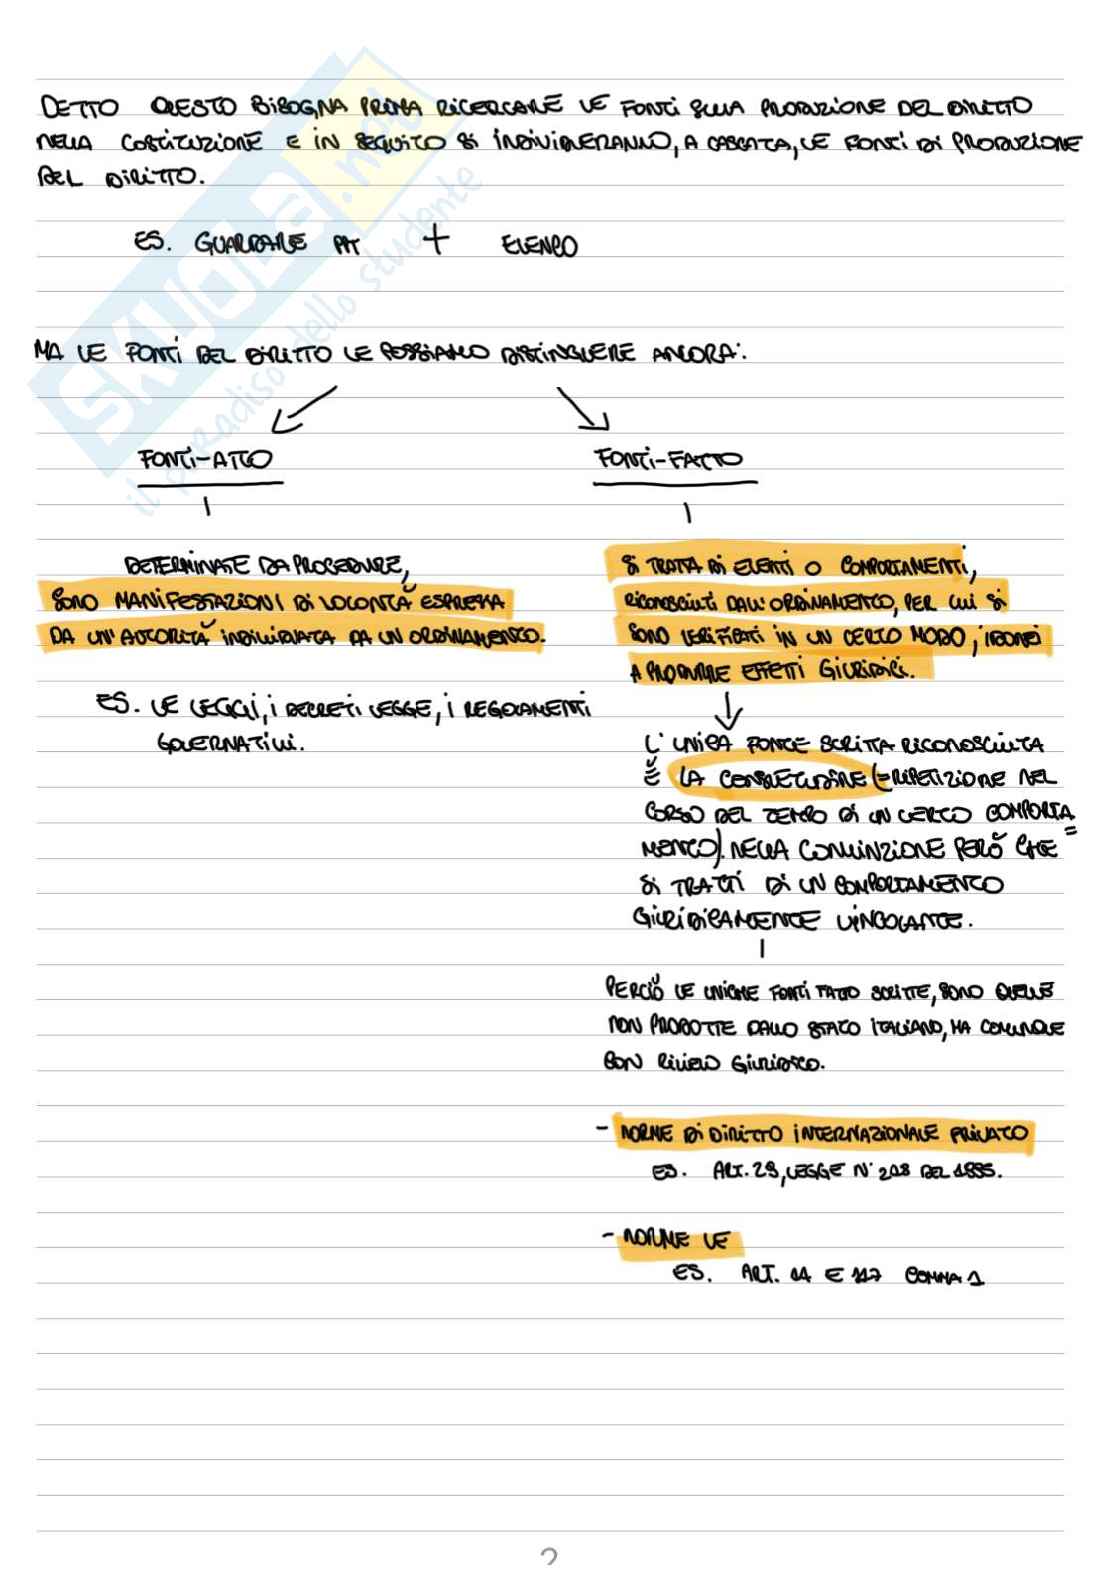 DETTO QUESTO BISOGNA PRIMA RICERCARE LE FONTI SULLA PRODUZIONE DEL DIRITTO
NELLA COSTITUZIONE E IN SEGUITO SI INDIVIDUERANNO, A CASCATA, LE FONTI DI PRODUZIONE
DEL DIRITTO.
ES. GUARDARE + ELENCO
MA LE FONTI DEL DIRITTO LE POSSIAMO DISTINGUERE ANCORA:
FONTI-ATTO FONTI-FATTO
DETERMINATE DA PROCEDURE,
SONO MANIFESTAZIONI DI VOLONTÀ ESPRESSA
DA UN'AUTORITÀ INDIVIDUATA DA UN ORDINAMENTO.
ES. LE LEGGI, I DECRETI LEGGE, I REGOLAMENTI
GOVERNATIVI.
SI TRATTA DI EVENTI O COMPORTAMENTI,
RICONOSCIUTI DALL'ORDINAMENTO, PER CUI SI
SONO VERIFICATI IN UN CERTO MODO, IDONEI
A PRODURRE EFFETTI GIURIDICI.
L'UNICA FONTE SCRITTA RICONOSCIUTA
È LA CONSUETUDINE (=RIPETIZIONE NEL
CORSO DEL TEMPO DI UN CERTO COMPORTA
=
MENTO). NELLA CONVINZIONE PERÒ CHE
SI TRATTI DI UN COMPORTAMENTO
GIURIDICAMENTE VINCOLANTE.
PERCIÒ LE UNICHE FONTI FATTO SCRITTE, SONO QUELLE
NON PRODOTTE DALLO STATO ITALIANO, MA COMUNQUE
CON RILIEVO GIURIDICO.
- NORME DI DIRITTO INTERNAZIONALE PRIVATO
ES. ART. 29, LEGGE N° 218 DEL 1995.
- NORME UE
ES. ART. 11 E 117 COMMA 1
2
SKUOLA.net
il paradiso dello studente